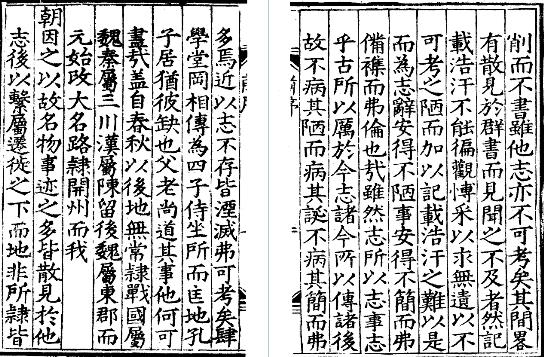 多焉近以志不存皆湮滅弗可考矣肆
學堂岡相傳為四子侍坐所而匡地孔
子居猶彼缺也父老尚道其事他何可
盡㢤盖自春秋以後地無常隸戰國屬
魏秦屬三川漢屬陳留後魏屬東郡而
元始改大名路隸開州而我
朝因之以故名物事迹之多皆散見於他
志後以繫屬遷徙之下而地非所隸皆
削而不書雖他志亦不可考矣其間畧
有散見於群書而見聞之不及者然記
載浩汗不能徧觀愽采以求無遺以不
可考之陋而加以記載浩汗之難以是
而為志辭安得不陋事安得不簡而弗
備襍而弗倫也㢤雖然志所以志事志
乎古所以厲於今志諸今所以傳諸後
故不病其陋而病其誕不病其簡而弗